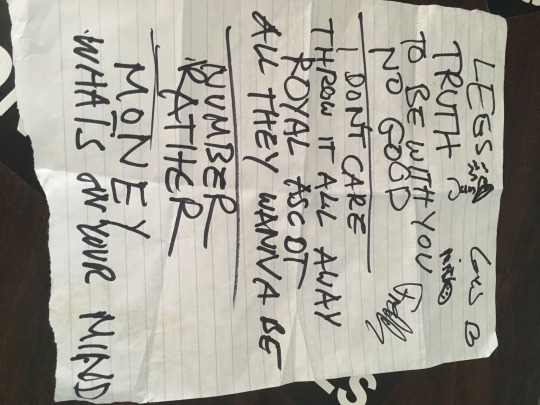 LEEGS
TRUTH
TO BE WITH YOU
NO GOOD
I DONT CARE
THROW IT ALL AWAY
ROYAL ASCOT
ALL THEY WANNA BE
NUMBER
RATHER
MONEY
WHATS ON YOUR MIND